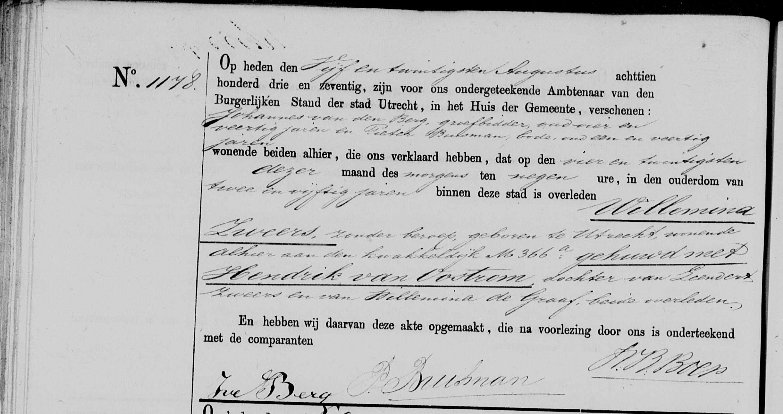 No. 1178.
Op heden den Vijf en twintigsten Augustus achttien
honderd drie en zeventig, zijn voor ons ondergeteekende Ambtenaar van den
Burgerlijken Stand der stad Utrecht, in het Huis der Gemeente, verschenen:
Johannes van den Berg, grafbidder, oud vier en
veertig jaren en Pieter Buisman, bode, oud een en veertig
jaren
wonende beiden alhier, die ons verklaard hebben, dat op den vier en twintigsten
dezer maand des morgens ten negen ure, in den ouderdom van
twee en vijftig jaren binnen deze stad is overleden
Willemina
Zweers, zonder beroep, geboren te Utrecht, wonende
alhier aan den No 366a gehuwd met
Hendrik van Oostrom, dochter van Leendert
Zweers en van Willemina de Graaf, beide overleden,
En hebben wij daarvan deze akte opgemaakt, die na voorlezing door ons is onderteekend
met de comparanten
JvdBerg P. Buisman